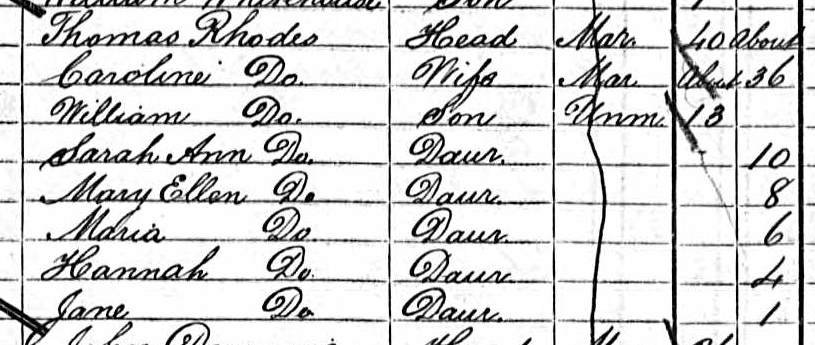 Son
Thomas Rhodes Head Mar. 40 About
Caroline Do. Wife Mar. About 36
William Do. Son Unm. 13
Sarah Ann Do. Daur. 10
Mary Ellen Do Daur. 8
Maria Do. Daur. 6
Hannah Do. Daur. 4
Jane Do Daur. 1